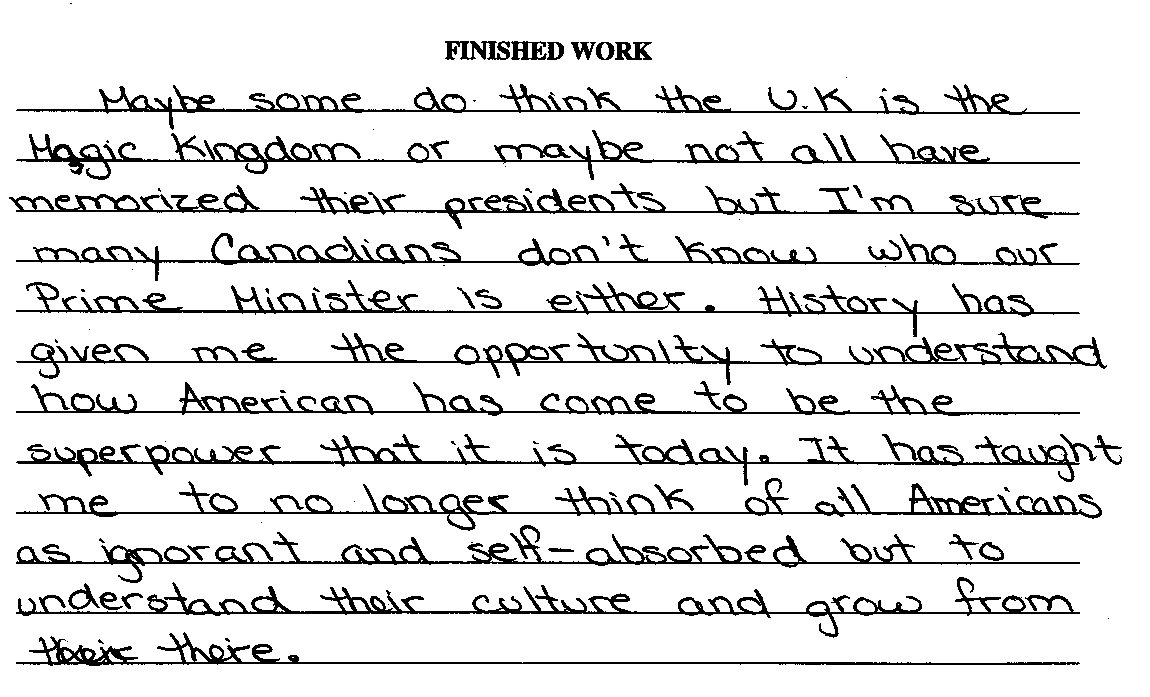 FINISHED WORK
Maybe some do think the U.K is the
Magic Kingdom or maybe not all have
memorized their presidents but I'm sure
many Canadians don't know who our
Prime Minister is either. History has
given me the opportunity to understand
how American has come to be the
superpower that it is today. It has taught
me to no longer think of all Americans
as ignorant and self-absorbed but to
understand their culture and grow from
there.